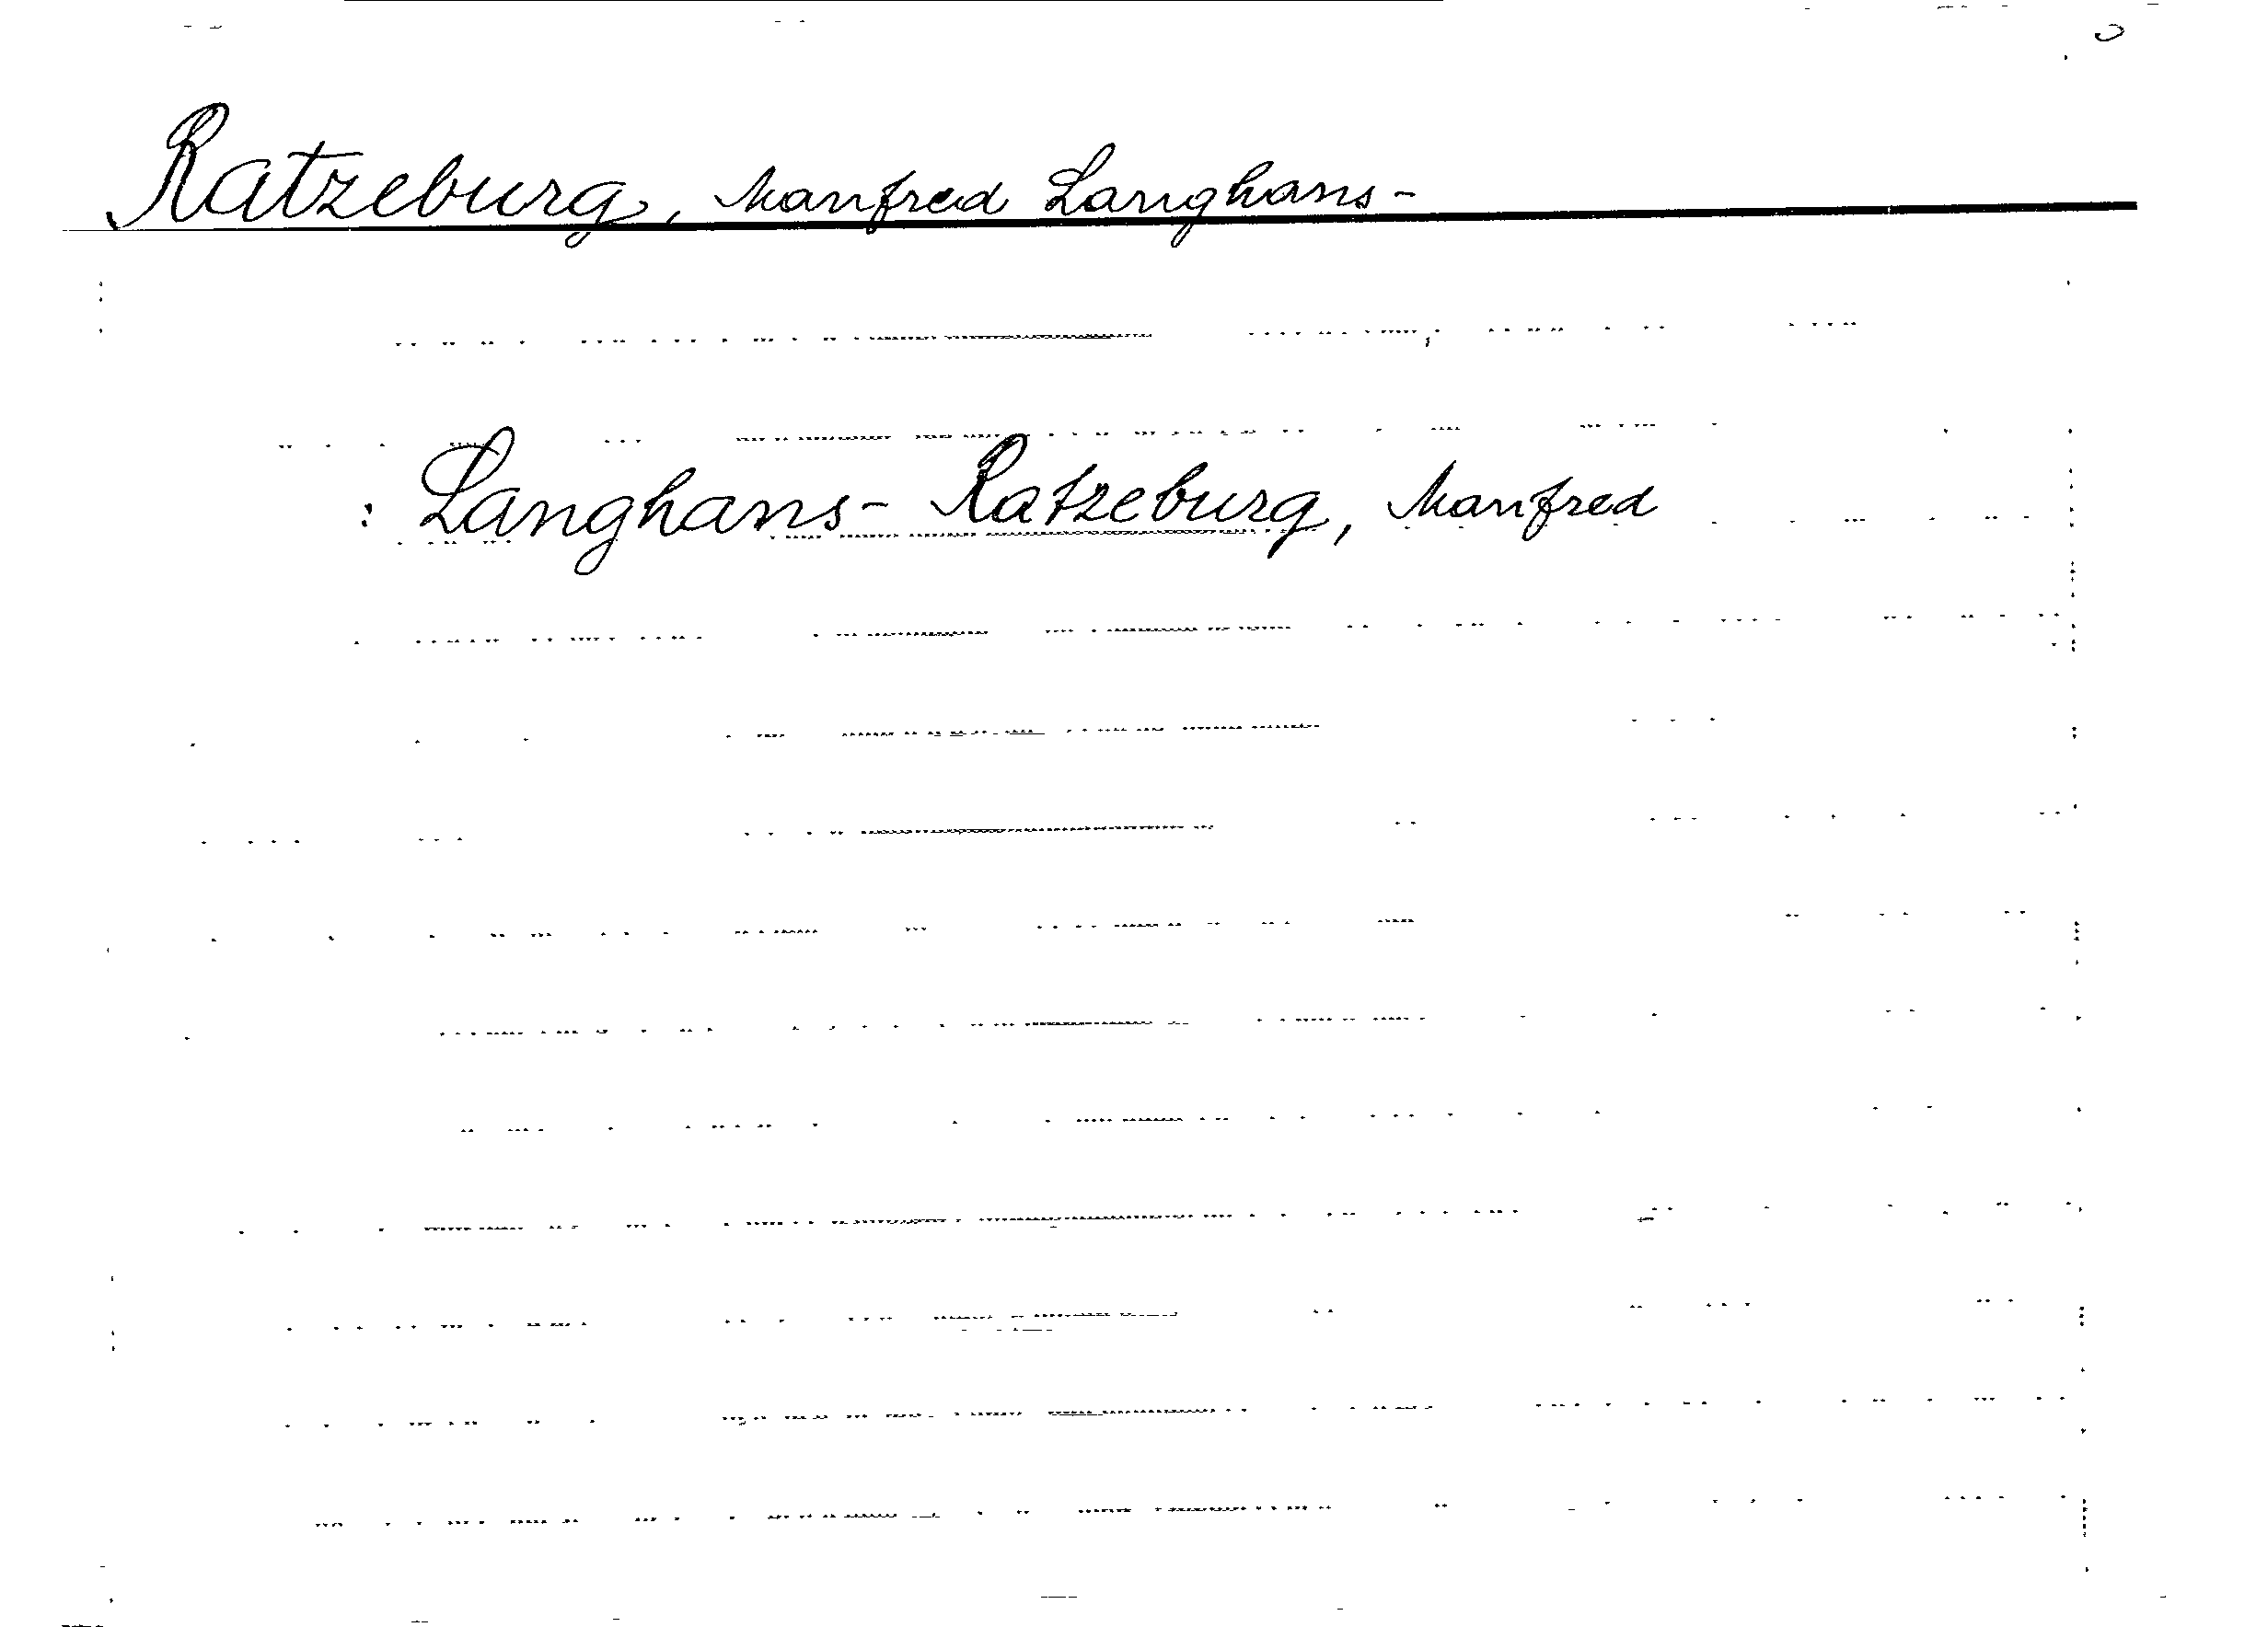 Ratzeburg, Manfred Langhans-
: Langhans- Ratzeburg, Manfred